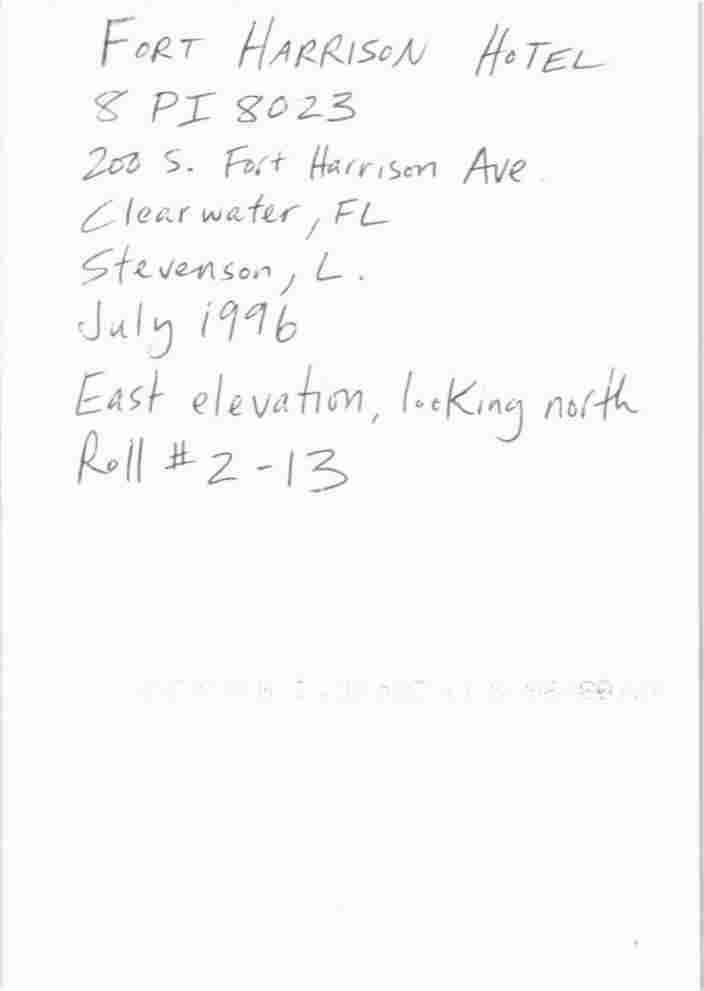 FORT HARRISON HOTEL
8 PI 8023
200 S. Fort Harrison Ave.
Clearwater, FL
Stevenson, L.
July 1996
East elevation, looking north
Roll # 2-13